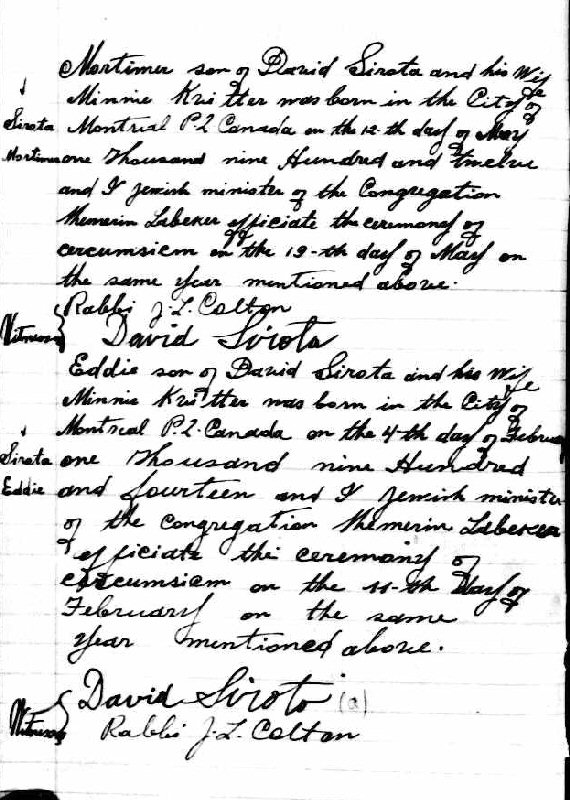 Mortimer son of David Sirota and his Wife
Minnie Kritter was born in the City of
Sirota Montreal P.Q Canada on the 12-th day of May
Mortimer one Thousand nine Hundred and twelve
and I Jewish minister of the Congregation
Shemerim Laboker efficiate the ceremony of
cercumsicm in the 19-th day of May on
the same year mentioned above.
Rabbi J. L. Colton
Witness David Sirota
Eddie son of David Sirota and his Wife
Minnie Kritter was born in the City of
Montreal P.Q. Canada on the 4-th day of February
Sirota one Thousand nine Hundred
Eddie and fourteen and I Jewish minister
of the congregation Shemerim Laboker
efficiate the ceremony of
cercumsicm on the 11-th Day of
February on the same
year mentioned above.
David Sirota (a)
Witness Rabbi J. L. Colton